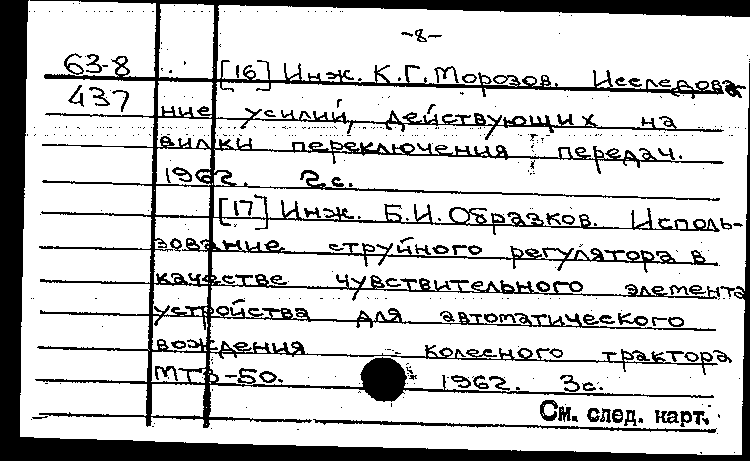 -8-
63-8 [16] Инж. К.Г. Морозов. Исследова-
437 ние усилий, действующих на
вилки переключения передач.
1962. 2 с.
[17] Инж. Б.И. Образков. Исполь-
зование струйного регулятора в
качестве чувствительного элемента
устройства для автоматического
вождения колесного трактора
МТЗ-50. 1962. 3 с.
См. след. карт.